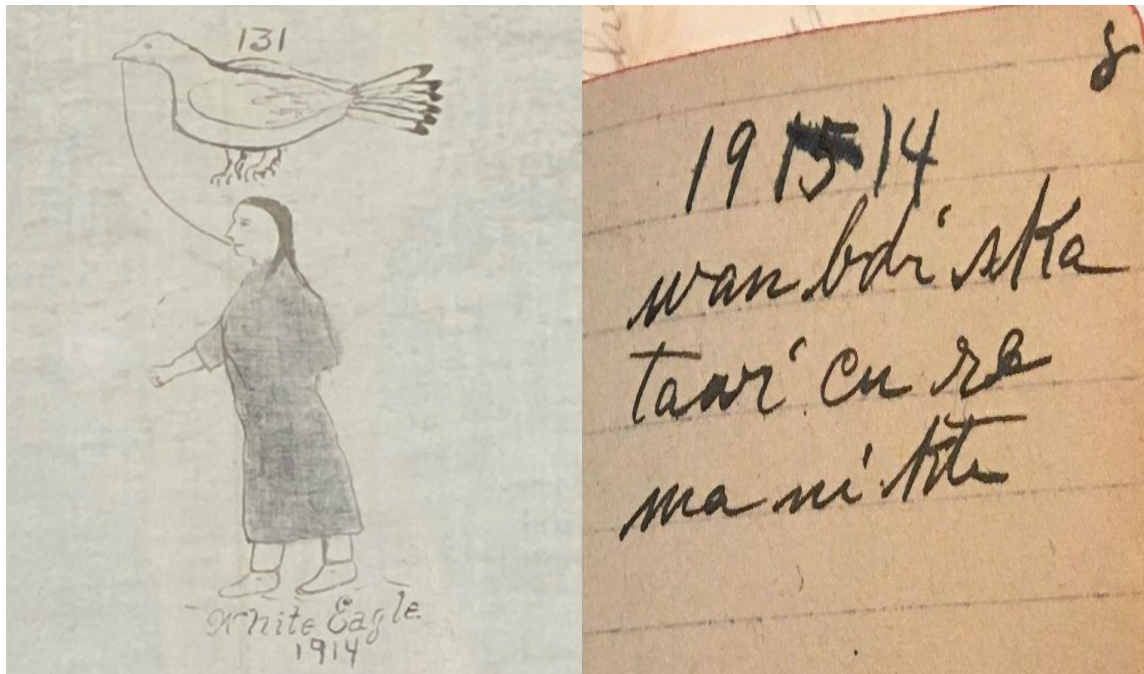 131
White Eagle
1914
8
19 14
wan bdi ska
tawi cu re
ma ni kte